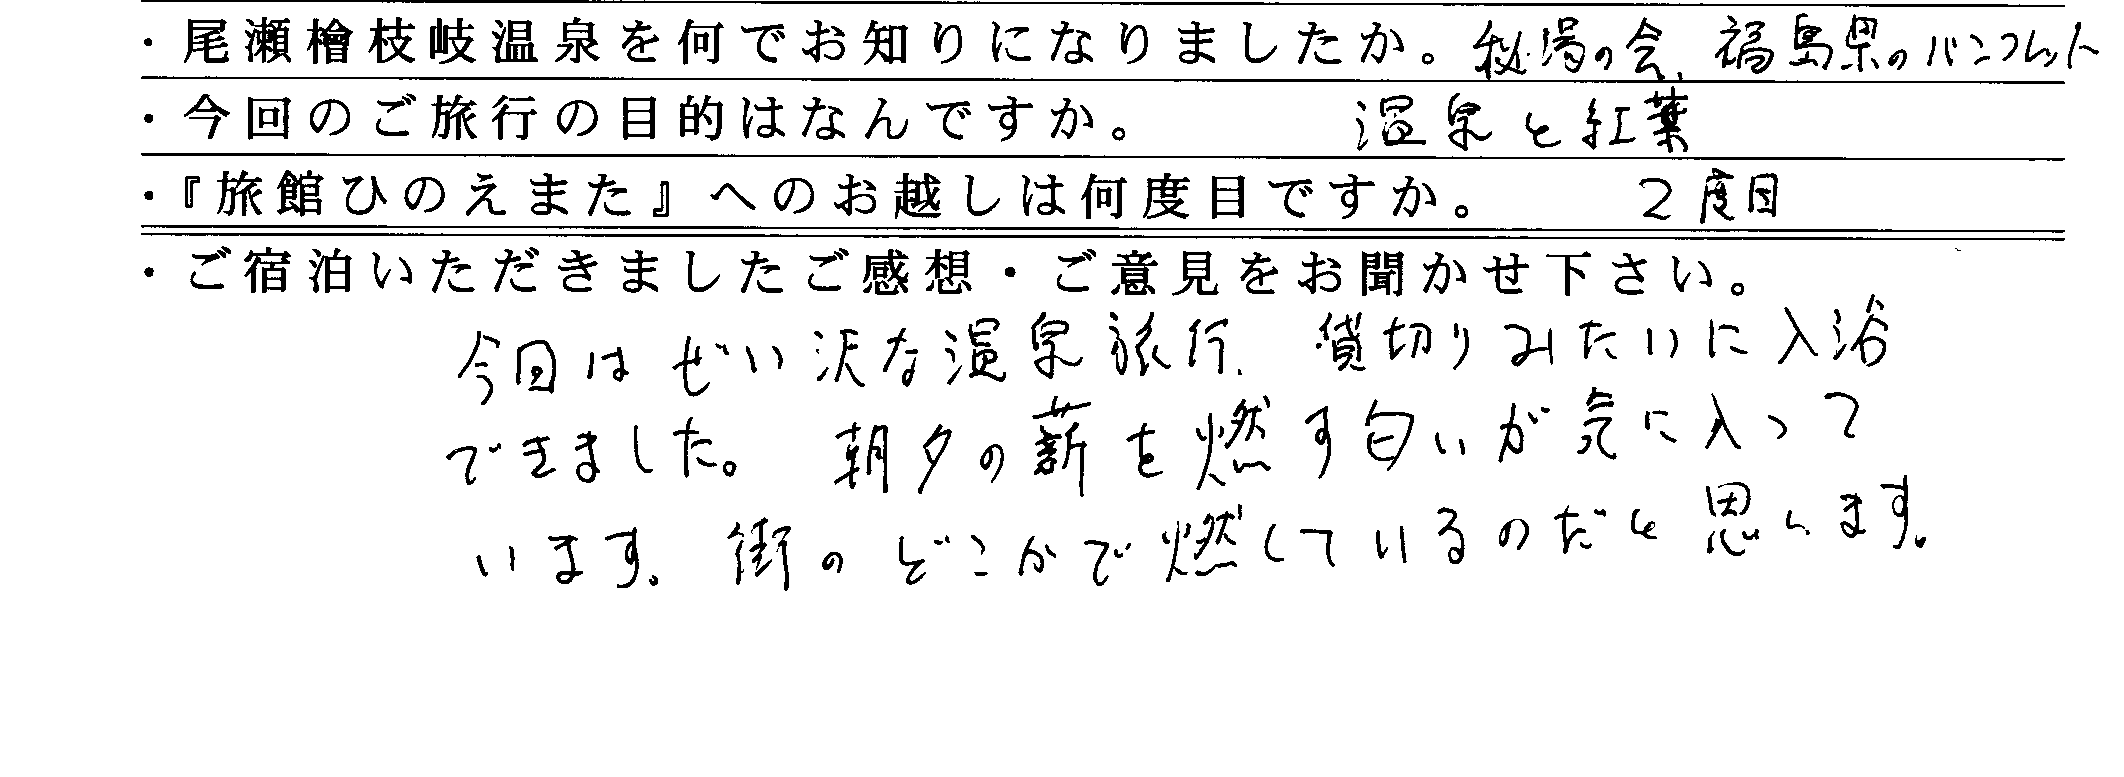 ・尾瀬檜枝岐温泉を何でお知りになりましたか。秘湯の会、福島県のパンフレット
・今回のご旅行の目的はなんですか。 温泉と紅葉
・『旅館ひのえまた』へのお越しは何度目ですか。 2度目
・ご宿泊いただきましたご感想・ご意見をお聞かせ下さい。
今回はぜい沢な温泉旅行、貸切りみたいに入浴
できました。朝夕の薪を燃す匂いが気に入って
います。街のどこかで燃しているのだと思います。